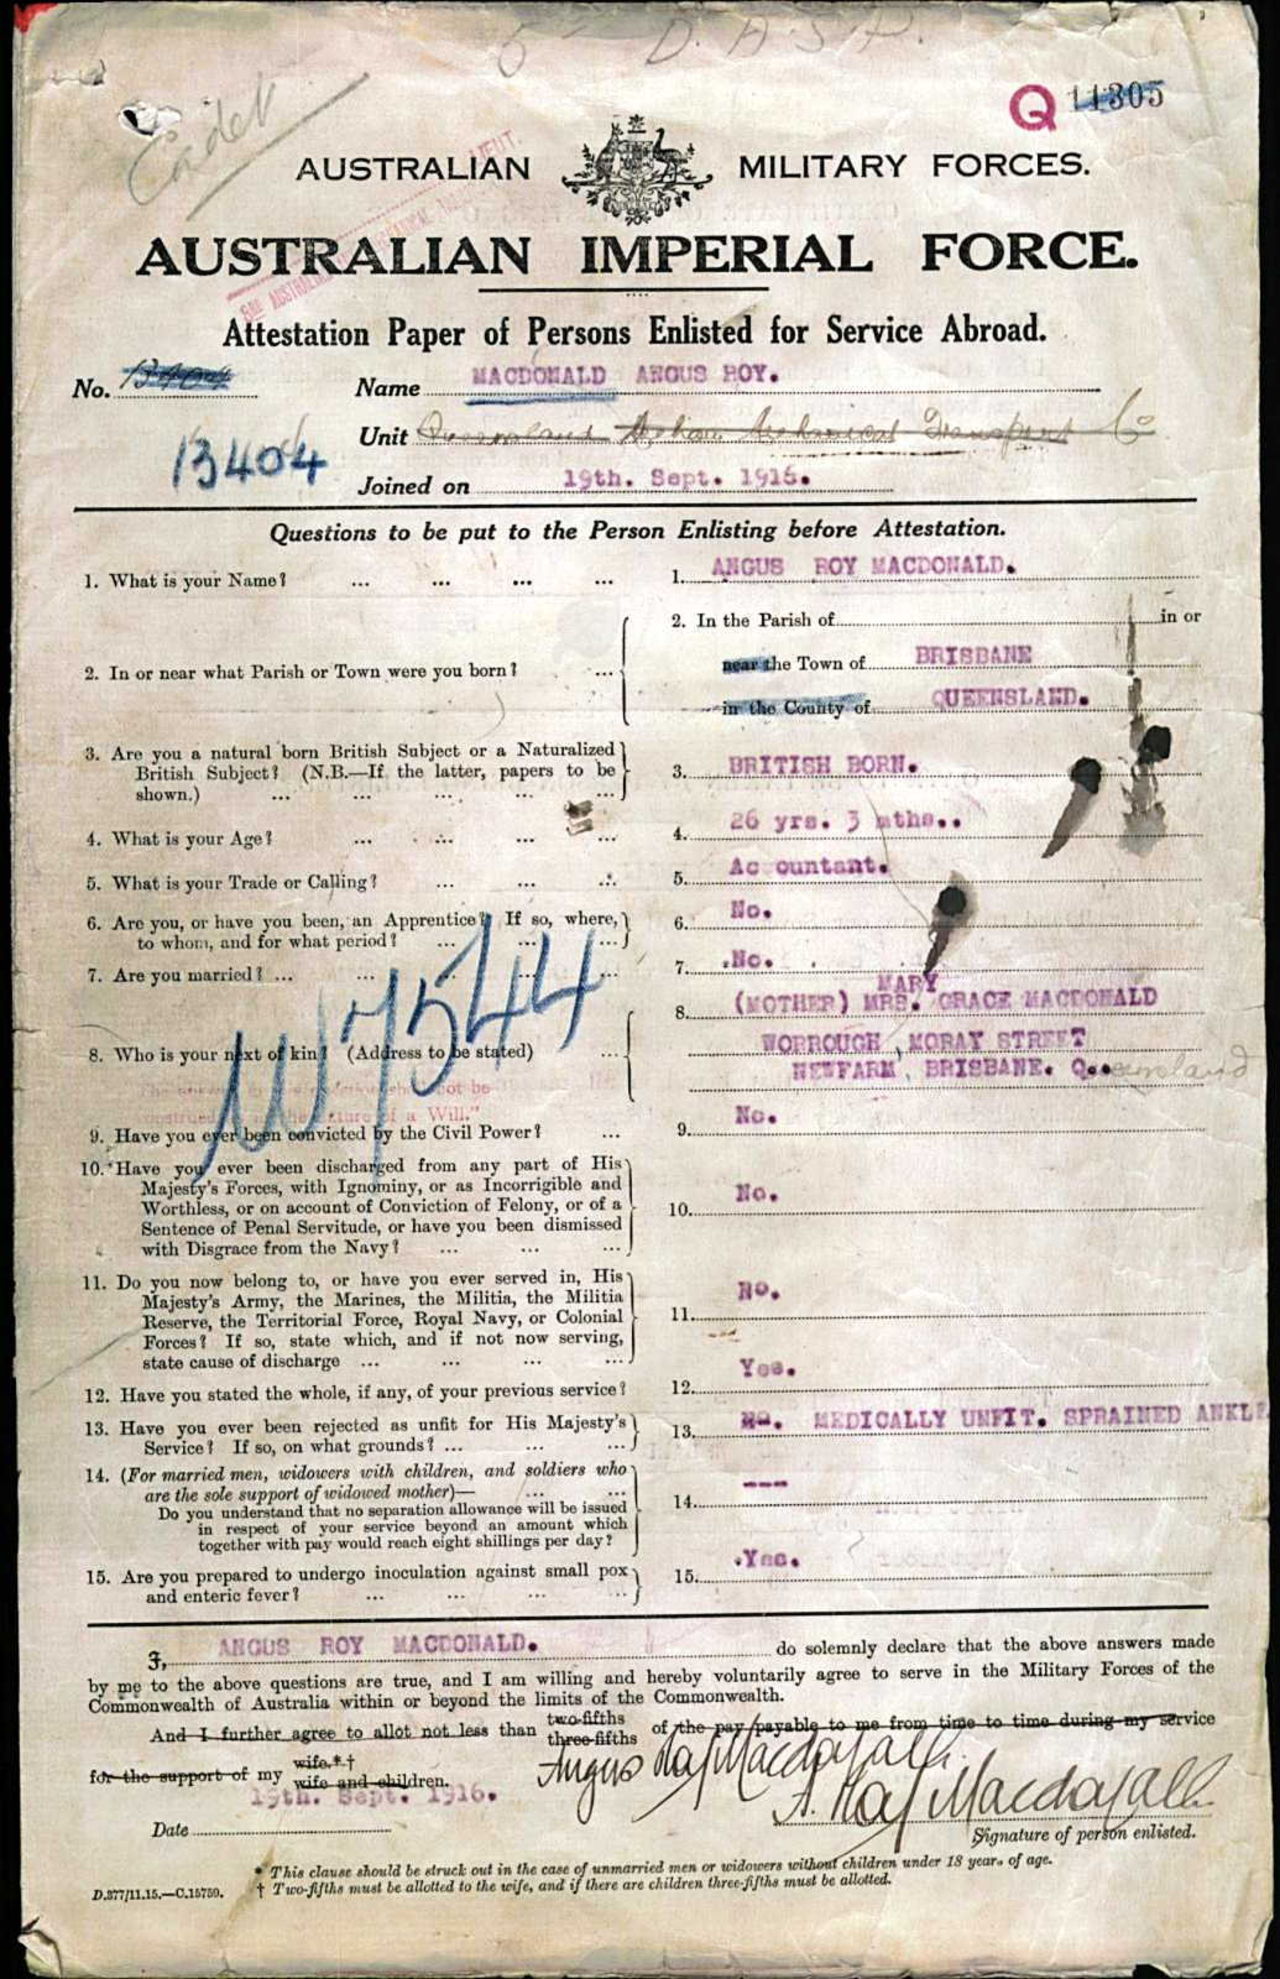 5th D.A.S.P.
Cadet
Q 11305
AUSTRALIAN MILITARY FORCES.
AUSTRALIAN IMPERIAL FORCE.
Attestation Paper of Persons Enlisted for Service Abroad.
No. 13404 Name MACDONALD ANGUS ROY.
13404
Unit Queensland Motor Mechanical Transport Co
Joined on 19th. Sept. 1916.
Questions to be put to the Person Enlisting before Attestation.
1. What is your Name? ... ... ... ... 1. ANGUS ROY MACDONALD.
2. In or near what Parish or Town were you born? ... 2. In the Parish of in or
near the Town of BRISBANE
in the County of QUEENSLAND.
3. Are you a natural born British Subject or a Naturalized
British Subject? (N.B.—If the latter, papers to be
shown.) ... ... ... ... ... 3. BRITISH BORN.
4. What is your Age? ... ... ... ... 4. 26 yrs. 3 mths..
5. What is your Trade or Calling? ... ... ... 5. Ac ountant.
6. Are you, or have you been, an Apprentice? If so, where,
to whom, and for what period? ... ... ... 6. No.
7. Are you married? ... ... ... ... ... 7. No.
W7544
8. Who is your next of kin? (Address to be stated) ... 8. (MOTHER) MRS. MARY GRACE MACDONALD
WORROUGH, MORAY STREET
NEWFARM, BRISBANE. Queensland
of a Will."
9. Have you ever been convicted by the Civil Power? ... 9. No.
10. Have you ever been discharged from any part of His
Majesty's Forces, with Ignominy, or as Incorrigible and
Worthless, or on account of Conviction of Felony, or of a
Sentence of Penal Servitude, or have you been dismissed
with Disgrace from the Navy? ... ... ... 10. No.
11. Do you now belong to, or have you ever served in, His
Majesty's Army, the Marines, the Militia, the Militia
Reserve, the Territorial Force, Royal Navy, or Colonial
Forces? If so, state which, and if not now serving,
state cause of discharge ... ... ... ... 11. No.
12. Have you stated the whole, if any, of your previous service? 12. Yes.
13. Have you ever been rejected as unfit for His Majesty's
Service? If so, on what grounds? ... ... ... 13. No. MEDICALLY UNFIT. SPRAINED ANKLE
14. (For married men, widowers with children, and soldiers who
are the sole support of widowed mother)— ... ...
Do you understand that no separation allowance will be issued
in respect of your service beyond an amount which
together with pay would reach eight shillings per day? 14. ---
15. Are you prepared to undergo inoculation against small pox
and enteric fever? ... ... ... ... 15. Yes.
I, ANGUS ROY MACDONALD. do solemnly declare that the above answers made
by me to the above questions are true, and I am willing and hereby voluntarily agree to serve in the Military Forces of the
Commonwealth of Australia within or beyond the limits of the Commonwealth.
And I further agree to allot not less than two-fifths three-fifths of the pay payable to me from time to time during my service
for the support of my wife.*† wife and children.
19th. Sept. 1916.
Date
Signature of person enlisted.
* This clause should be struck out in the case of unmarried men or widowers without children under 18 years of age.
† Two-fifths must be allotted to the wife, and if there are children three-fifths must be allotted.
D.377/11.15.—C.15759.